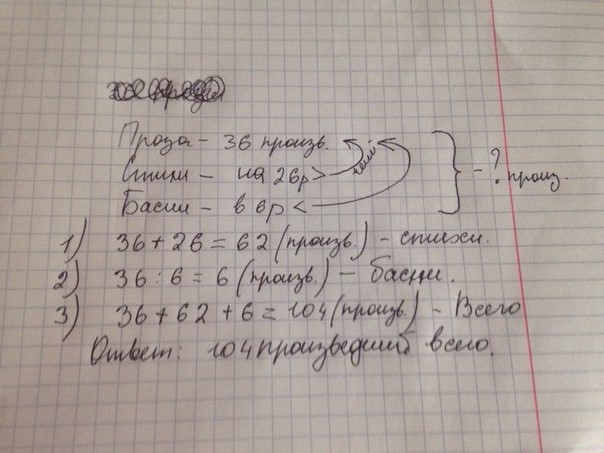 Проза - 36 произв.
Стихи - на 26р > чем
Басни - в 6р <
} - ? произ.
1) 36 + 26 = 62 (произв.) - стихи.
2) 36 : 6 = 6 (произв.) - басни.
3) 36 + 62 + 6 = 104 (произв.) - Всего
Ответ: 104 произведший всего.